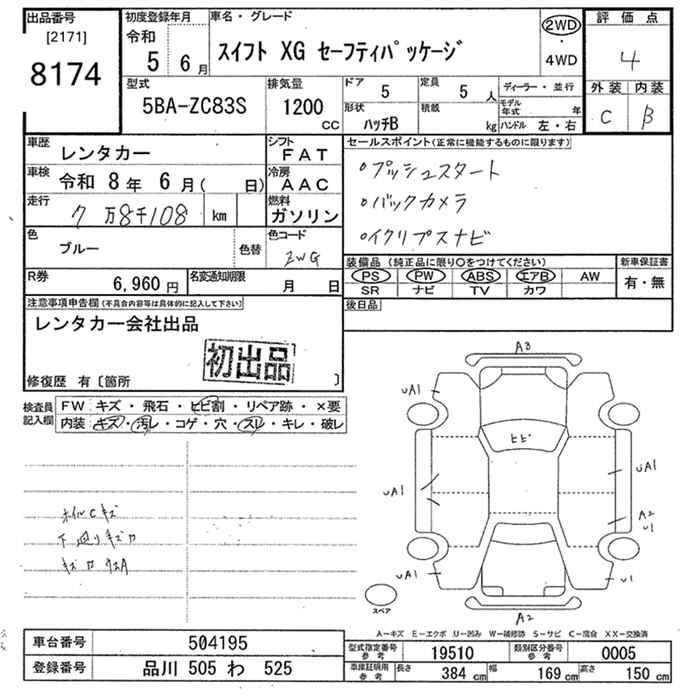 出品番号
[2171]
8174
初度登録年月
令和
5 6月
車名・グレード
スイフト XG セーフティパッケージ
2WD
・
4WD
評価点
4
外装 内装
C B
型式
5BA-ZC83S
排気量
1200
CC
ドア 5
定員 5 人
形状 ハッチB
積載 kg
ディーラー・並行
モデル年式 年
ハンドル 左・右
車歴 レンタカー
シフト FAT
車検 令和 8年 6月( 日)
冷房 AAC
走行 7万8千108 km
燃料 ガソリン
色 ブルー
色替
色コード ZWG
R券 6,960円
名変通知期限 月 日
セールスポイント(正常に機能するものに限ります)
○プッシュスタート
○バックカメラ
○イクリプスナビ
装備品(純正品に限り○をつけてください) 新車保証書
PS PW ABS エアB AW 有・無
SR ナビ TV カワ
後日品
注意事項申告欄(不具合内容等は具体的に記入して下さい)
レンタカー会社出品
初出品
修復歴 有〔箇所 〕
検査員記入欄
FW キズ・飛石・ヒビ割・リペア跡・×要
内装 キズ・汚レ・コゲ・穴・スレ・キレ・破レ
ホイルCキズ
下廻りキズカ
A3
UA1
ヒビ
UA1
UA1
A2
U1
UA1
U1
スペア
A2
A-キズ E-エクボ U-凹み W-補修跡 S-サビ C-腐食 XX-交換済
車台番号 504195
登録番号 品川 505 わ 525
型式指定番号 参考 19510
類別区分番号 参考 0005
車庫証明用 参考 長さ 384 cm 幅 169 cm 高さ 150 cm